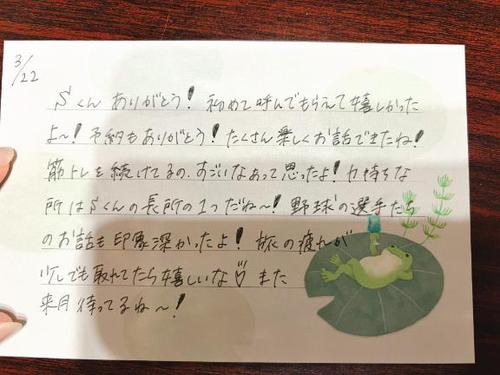 3/22
Sくん ありがとう! 初めて呼んでもらえて嬉しかった
よ〜! 予約もありがとう! たくさん楽しくお話できたね!
筋トレを続けてるの、すごいなあって思ったよ! 力持ちな
所はSくんの長所の1つだね〜! 野球の選手たち
のお話も印象深かったよ! 旅の疲れが
少しでも取れてたら嬉しいな♡ また
来月待ってるね〜!